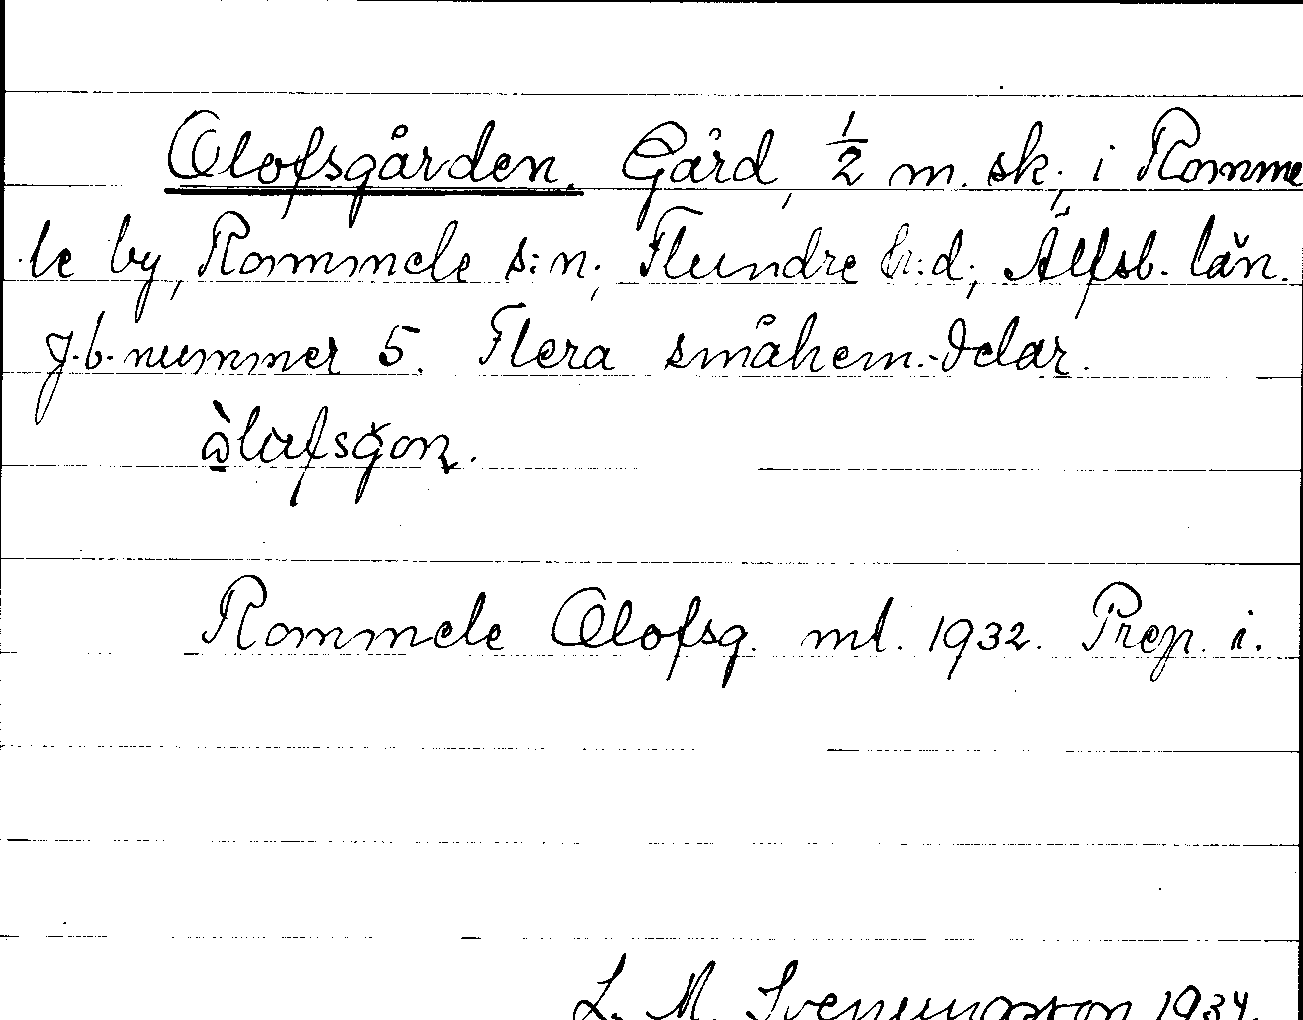 Olofsgården. Gård, 1/2 m. sk., i Romme
le by, Rommele s:n, Flundre h:d, Älfsb. län.
J.b. nummer 5. Flera småhem.-delar.
Rommele Olofsg. ml. 1932. Prep. i.
L. M. Svenungsson 1934.